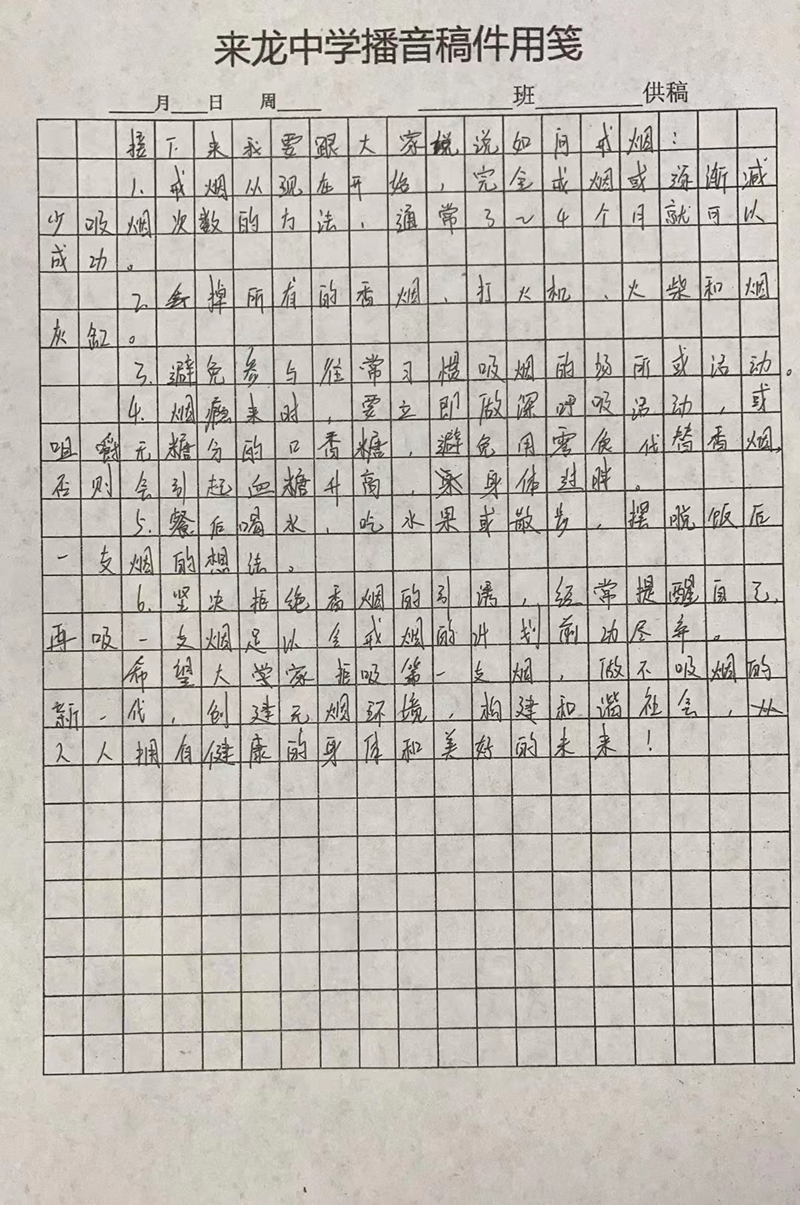 来龙中学播音稿件用笺
____月____日 周____ ________班________供稿
接下来我要跟大家说说如何戒烟：
1. 戒烟从现在开始，完全戒烟或逐渐减
少吸烟次数的方法，通常3~4个月就可以
成功。
2. 丢掉所有的香烟、打火机、火柴和烟
灰缸。
3. 避免参与往常习惯吸烟的场所或活动。
4. 烟瘾来时，要立即做深呼吸活动，或
咀嚼无糖分的口香糖，避免用零食代替香烟，
否则会引起血糖升高，身体过胖。
5. 餐后喝水，吃水果或散步，摆脱饭后
一支烟的想法。
6. 坚决拒绝香烟的引诱，经常提醒自己，
再吸一支烟足以令戒烟的计划前功尽弃。
希望大家拒吸第一支烟，做不吸烟的
新一代，创建无烟环境，构建和谐社会，
人人拥有健康的身体和美好的未来！